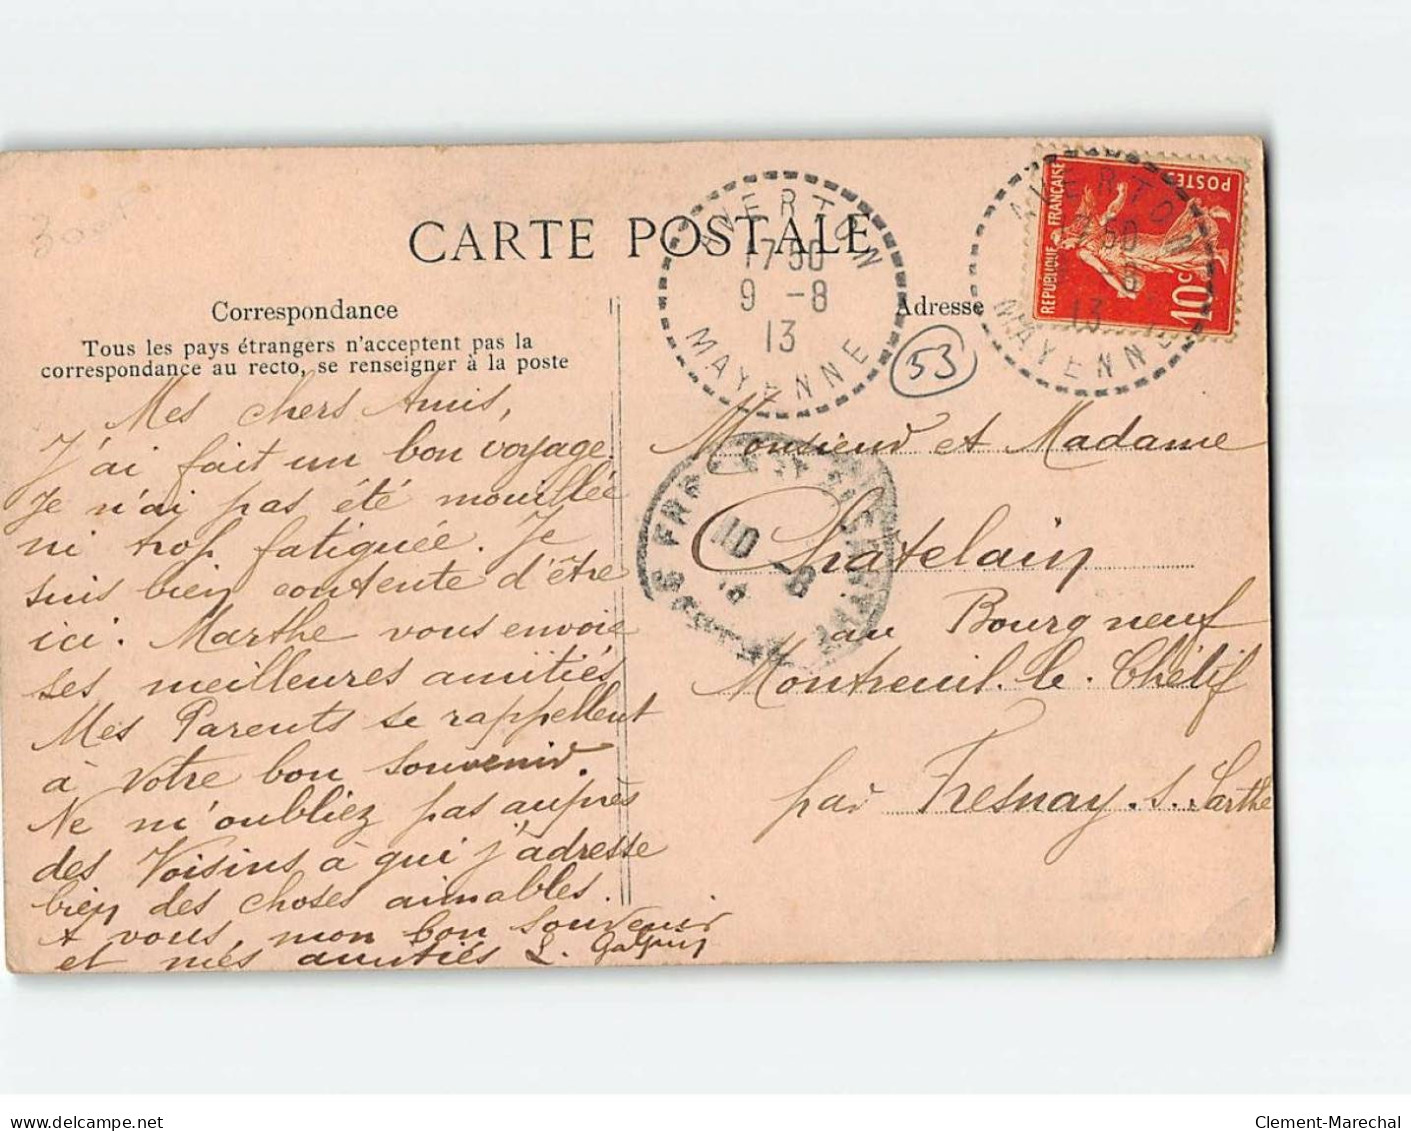 CARTE POSTALE
Correspondance
Tous les pays étrangers n'acceptent pas la
correspondance au recto, se renseigner à la poste
Mes chers Amis,
J'ai fait un bon voyage.
Je n'ai pas été mouillée
ni trop fatiguée. Je
suis bien contente d'être
ici. Marthe vous envoie
ses meilleures amitiés
Mes Parents se rappellent
à votre bon souvenir.
Ne m'oubliez pas auprès
des Voisins à qui j'adresse
bien des choses aimables.
A vous, mon bon souvenir
et mes amitiés L.
AVERTON
17 50
9 -8
13
MAYENNE
Adresse
53
AVERTON
13
MAYENNE
REPUBLIQUE FRANÇAISE
POSTES
10c
10 -8
Monsieur et Madame
Chatelain
au Bourg neuf
Montreuil. le. Chétif
par Fresnay. s. Sarthe
www.delcampe.net
Clement-Marechal